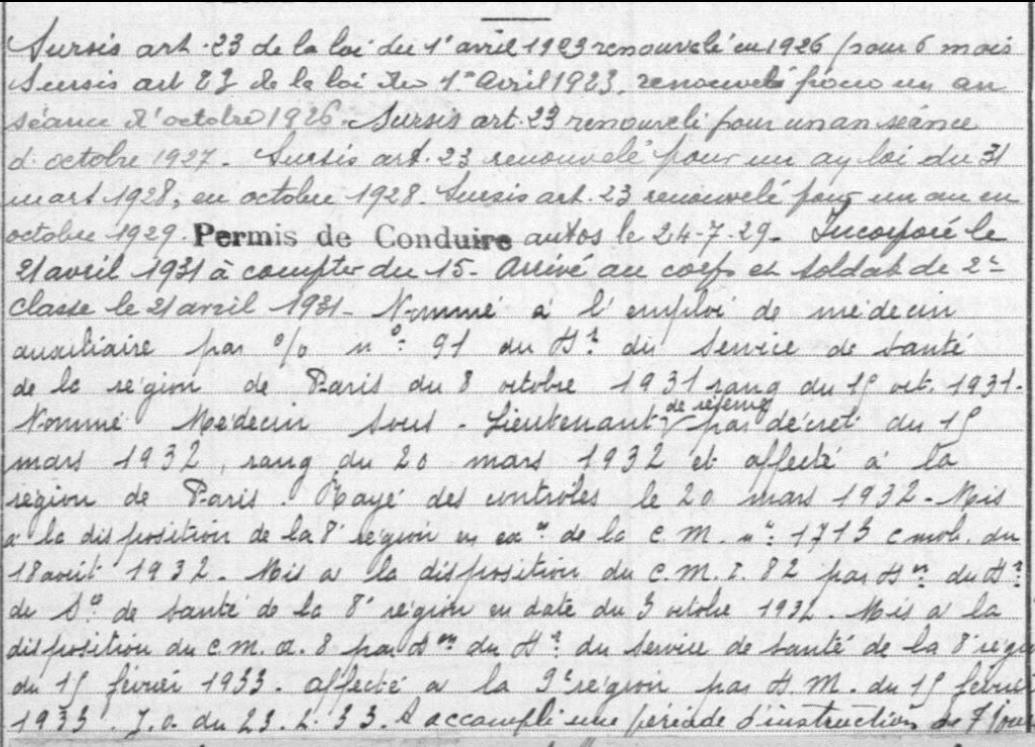 Sursis art. 23 de la loi du 1er avril 1923 renouvelé en 1926 pour 6 mois
Sursis art 23 de la loi du 1er Avril 1923, renouvelé pour un an
séance d'octobre 1926. Sursis art. 23 renouvelé pour un an séance
d'octobre 1927. Sursis art. 23 renouvelé pour un an loi du 31
mars 1928, en octobre 1928. Sursis art. 23 renouvelé pour un an en
octobre 1929. Permis de Conduire autos le 24-7-29. Incorporé le
21 avril 1931 à compter du 15. Arrivé au corps et soldat de 2e
classe le 21 avril 1931. Nommé à l'emploi de médecin
auxiliaire par % n°: 91 du Dr du Service de Santé
de la région de Paris du 8 octobre 1931 rang du 15 oct. 1931.
Nommé Médecin Sous-Lieutenant de réserve par décret du 15
mars 1932, rang du 20 mars 1932 et affecté à la
région de Paris. Rayé des contrôles le 20 mars 1932. Mis
à la disposition de la 8e région en exon de la C.M. n°: 1713 C mob. du
18 août 1932. Mis à la disposition du C.M.I. 82 par Don du Dr
du Sce de santé de la 8e région en date du 3 octobre 1932. Mis à la
disposition du C.M.A. 8 par Don du Dr du Service de santé de la 8e région
du 15 février 1933. Affecté à la 9e région par D.M. du 15 février
1933. J.O. du 23.2.33. A accompli une période d'instruction de 7 jours